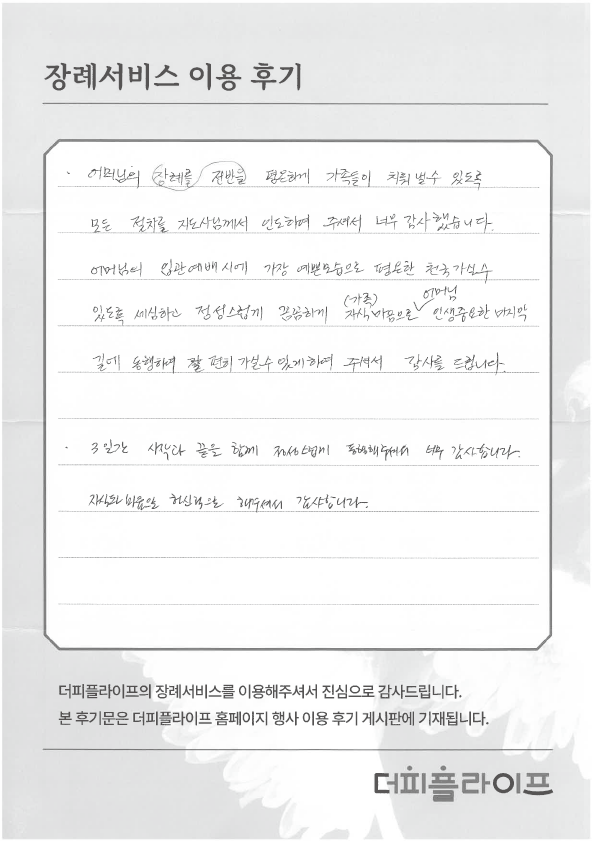 장례서비스 이용 후기
· 어머님의 장례를 전반을 평온하게 가족들이 치뤄낼수 있도록
모든 절차를 지도사님께서 인도하여 주셔서 너무 감사했습니다.
어머님의 입관예배시에 가장 예쁜모습으로 평온한 천국가실수
(가족) 어머님
있도록 세심하고 정성스럽게 꼼꼼하게 자식마음으로 ✓ 인생중요한 마지막
길에 동행하여 잘 편히 가실수 있게하여 주셔서 감사를 드립니다.
· 3일간 시작과 끝을 함께 정성스럽게 동행해주셔서 너무 감사합니다.
자식된마음으로 헌신적으로 해주셔서 감사합니다.
더피플라이프의 장례서비스를 이용해주셔서 진심으로 감사드립니다.
본 후기문은 더피플라이프 홈페이지 행사 이용 후기 게시판에 기재됩니다.
더피플라이프